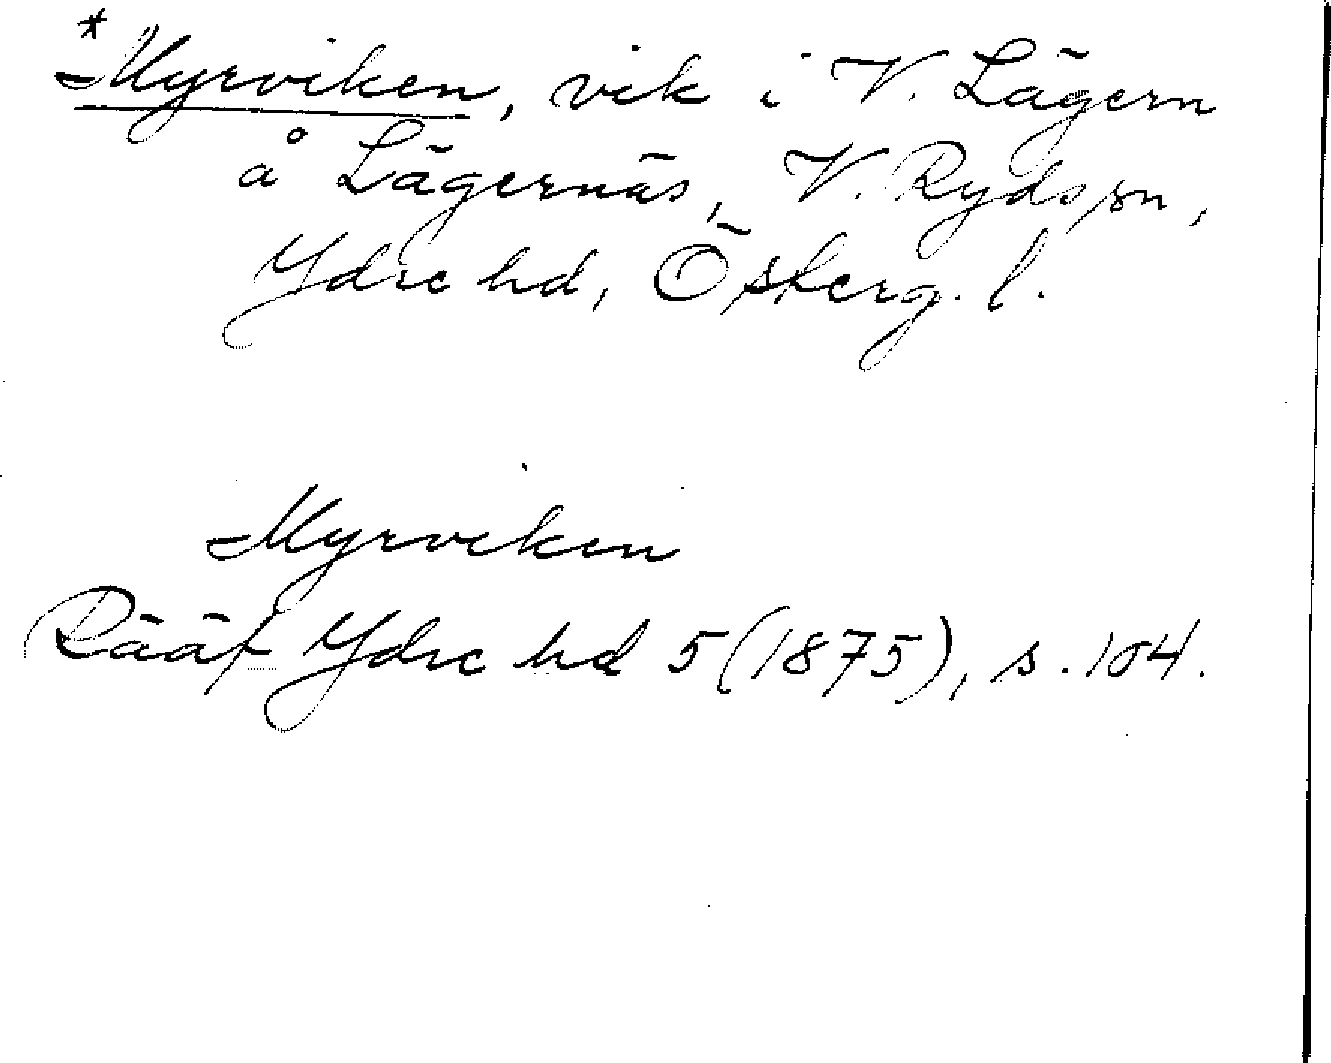 *Myrviken, vik i V. Lägern
å Lägernäs, V. Ryds sn,
Ydre hd, Österg. l.
Myrviken
Rääf Ydre hd 5 (1875), s. 104.